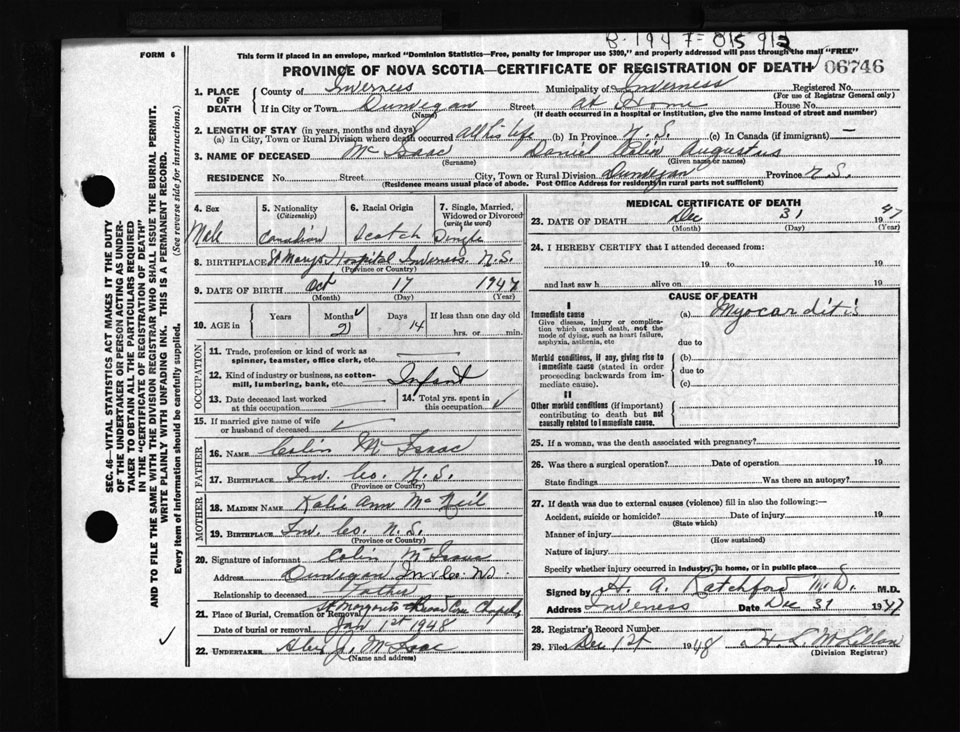 B-1947-815913
FORM 6
This form if placed in an envelope, marked "Dominion Statistics—Free, penalty for improper use $300," and properly addressed will pass through the mail "FREE"
PROVINCE OF NOVA SCOTIA—CERTIFICATE OF REGISTRATION OF DEATH 06746
1. PLACE OF DEATH { County of Inverness Municipality of Inverness Registered No.
(For use of Registrar General only)
If in City or Town Dunvegan Street at Home House No.
(Name) (If death occurred in a hospital or institution, give the name instead of street and number)
2. LENGTH OF STAY (in years, months and days)
(a) In City, Town or Rural Division where death occurred all his life (b) In Province N.S. (c) In Canada (if immigrant) —
3. NAME OF DECEASED McIsaac Daniel Colin Augustus
(Surname) (Given name or names)
RESIDENCE No. Street City, Town or Rural Division Dunvegan Province N.S.
(Residence means usual place of abode. Post Office Address for residents in rural parts not sufficient)
4. Sex Male
5. Nationality (Citizenship) Canadian
6. Racial Origin Scotch
7. Single, Married, Widowed or Divorced (write the word) Single
8. BIRTHPLACE St Marys Hospital Inverness. N.S.
(Province or Country)
9. DATE OF BIRTH Oct 17 1947
(Month) (Day) (Year)
10. AGE in { Years Months 2 Days 14 If less than one day
hrs. or min.
OCCUPATION
11. Trade, profession or kind of work as spinner, teamster, office clerk, etc. —
12. Kind of industry or business, as cotton-mill, lumbering, bank, etc. Infant
13. Date deceased last worked at this occupation
14. Total yrs. spent in this occupation ✓
15. If married give name of wife or husband of deceased ✓
FATHER
16. NAME Colin McIsaac
17. BIRTHPLACE Inv. Co. N.S.
(Province or Country)
MOTHER
18. MAIDEN NAME Katie Ann McNeil
19. BIRTHPLACE Inv. Co. N.S.
(Province or Country)
20. Signature of informant Colin McIsaac
Address Dunvegan Inv Co. N.S.
Relationship to deceased Father
21. Place of Burial, Cremation or Removal St Margarets Broad Cove Chapel
Date of burial or removal Jan 1st 1948
22. UNDERTAKER Alex J. McIsaac
(Name and address)
MEDICAL CERTIFICATE OF DEATH
23. DATE OF DEATH Dec 31 1947
(Month) (Day) (Year)
24. I HEREBY CERTIFY that I attended deceased from:
19 to 19
and last saw h alive on 19
CAUSE OF DEATH
I
Immediate cause
Give disease, injury or complication which caused death, not the mode of dying, such as heart failure, asphyxia, asthenia, etc
(a) Myocarditis
due to
Morbid conditions, if any, giving rise to immediate cause (stated in order proceeding backwards from immediate cause).
(b)
due to
(c)
II
Other morbid conditions (if important) contributing to death but not causally related to immediate cause.
25. If a woman, was the death associated with pregnancy?
26. Was there a surgical operation? Date of operation 19
State findings Was there an autopsy?
27. If death was due to external causes (violence) fill in also the following:—
Accident, suicide or homicide? Date of injury 19
(State which)
Manner of injury
(How sustained)
Nature of injury
Specify whether injury occurred in industry, in home, or in public place
Signed by H. A. Ratchford M.D. M.D.
Address Inverness Date Dec 31 1947
28. Registrar's Record Number
29. Filed 1948 H L McLellan
(Division Registrar)
SEC. 46—VITAL STATISTICS ACT MAKES IT THE DUTY
OF THE UNDERTAKER OR PERSON ACTING AS UNDER-
TAKER TO OBTAIN ALL THE PARTICULARS REQUIRED
IN THE "CERTIFICATE OF REGISTRATION OF DEATH"
AND TO FILE THE SAME WITH THE DIVISION REGISTRAR WHO SHALL ISSUE THE BURIAL PERMIT.
WRITE PLAINLY WITH UNFADING INK. THIS IS A PERMANENT RECORD.
Every item of information should be carefully supplied. (See reverse side for instructions.)